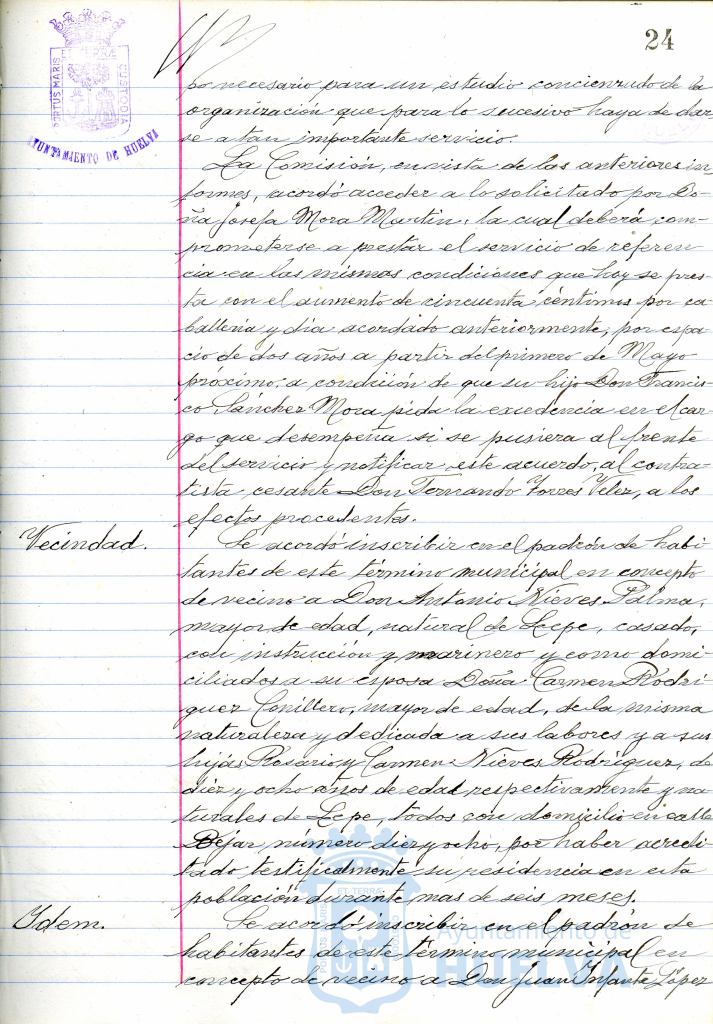 24
PORTUS MARIS ET TERRÆ CUSTODIA
AYUNTAMIENTO DE HUELVA
po necesario para un estudio concienzudo de la
organización que para lo sucesivo haya de dar-
se a tan importante servicio.
La Comisión, en vista de las anteriores in
formes, acordó acceder a lo solicitado por Do-
ña Josefa Mora Martin, la cual deberá com-
prometerse a prestar el servicio de referen
cia en las mismas condiciones que hoy se pres
ta con el aumento de cincuenta céntimos por ca
ballería y día acordado anteriormente, por espa
cio de dos años a partir del primero de Mayo
próximo, a condición de que su hijo Don Francis-
co Sánchez Mora pida la excedencia en el car-
go que desempeña si se pusiera al frente
del servicio y notificar este acuerdo, al contra-
tista cesante Don Fernando Torres Velez, a los
efectos procedentes.
Vecindad.
Se acordó inscribir en el padrón de habi
tantes de este término municipal en concepto
de vecino a Don Antonio Nieves Palma,
mayor de edad, natural de Lepe, casado,
con instrucción y marinero y como domi-
ciliados a su esposa Doña Carmen Rodri
guez mayor de edad, de la misma
naturaleza y dedicada a sus labores y a sus
hijas Rosario y Carmen Nieves Rodriguez, de
diez y ocho años de edad respectivamente y na
turales de Lepe, todos con domicilio en calle
Bejar, número diez y ocho, por haber acredi
tado testificalmente su residencia en esta
población durante mas de seis meses.
Ydem.
Se acordó inscribir en el padrón de
habitantes de este término municipal en
concepto de vecino a Don Juan Infante López
Ayuntamiento de
HUELVA